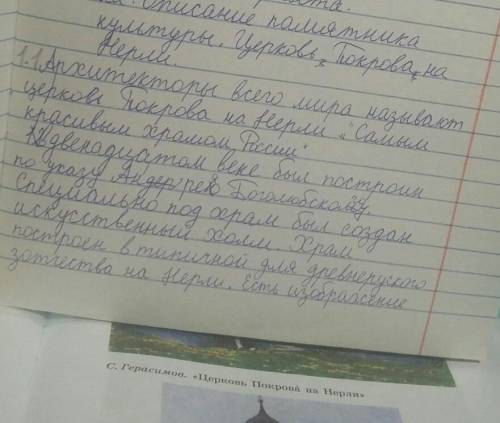 описание памятника
культуры. Церковь Покрова на
Нерли.
1.1 Архитекторы всего мира называют
церковь Покрова на Нерли "Самым
красивым храмом России"
двенадцатом веке был построин
по указу Боголюбскому.
Специально под храм был создан
искусственный холм Храм
построен в типичной для древнеруского
зотчества на Нерли. Есть изображение
С. Герасимов. «Церковь Покрова́ на Нерли»